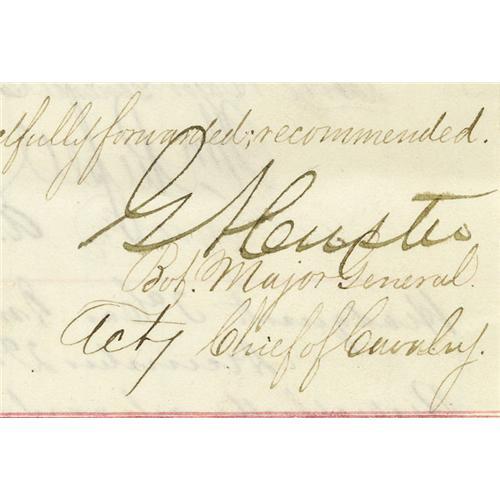 ctfully forwarded; recommended.
G A Custer
Bvt. Major General.
Actg Chief of Cavalry.